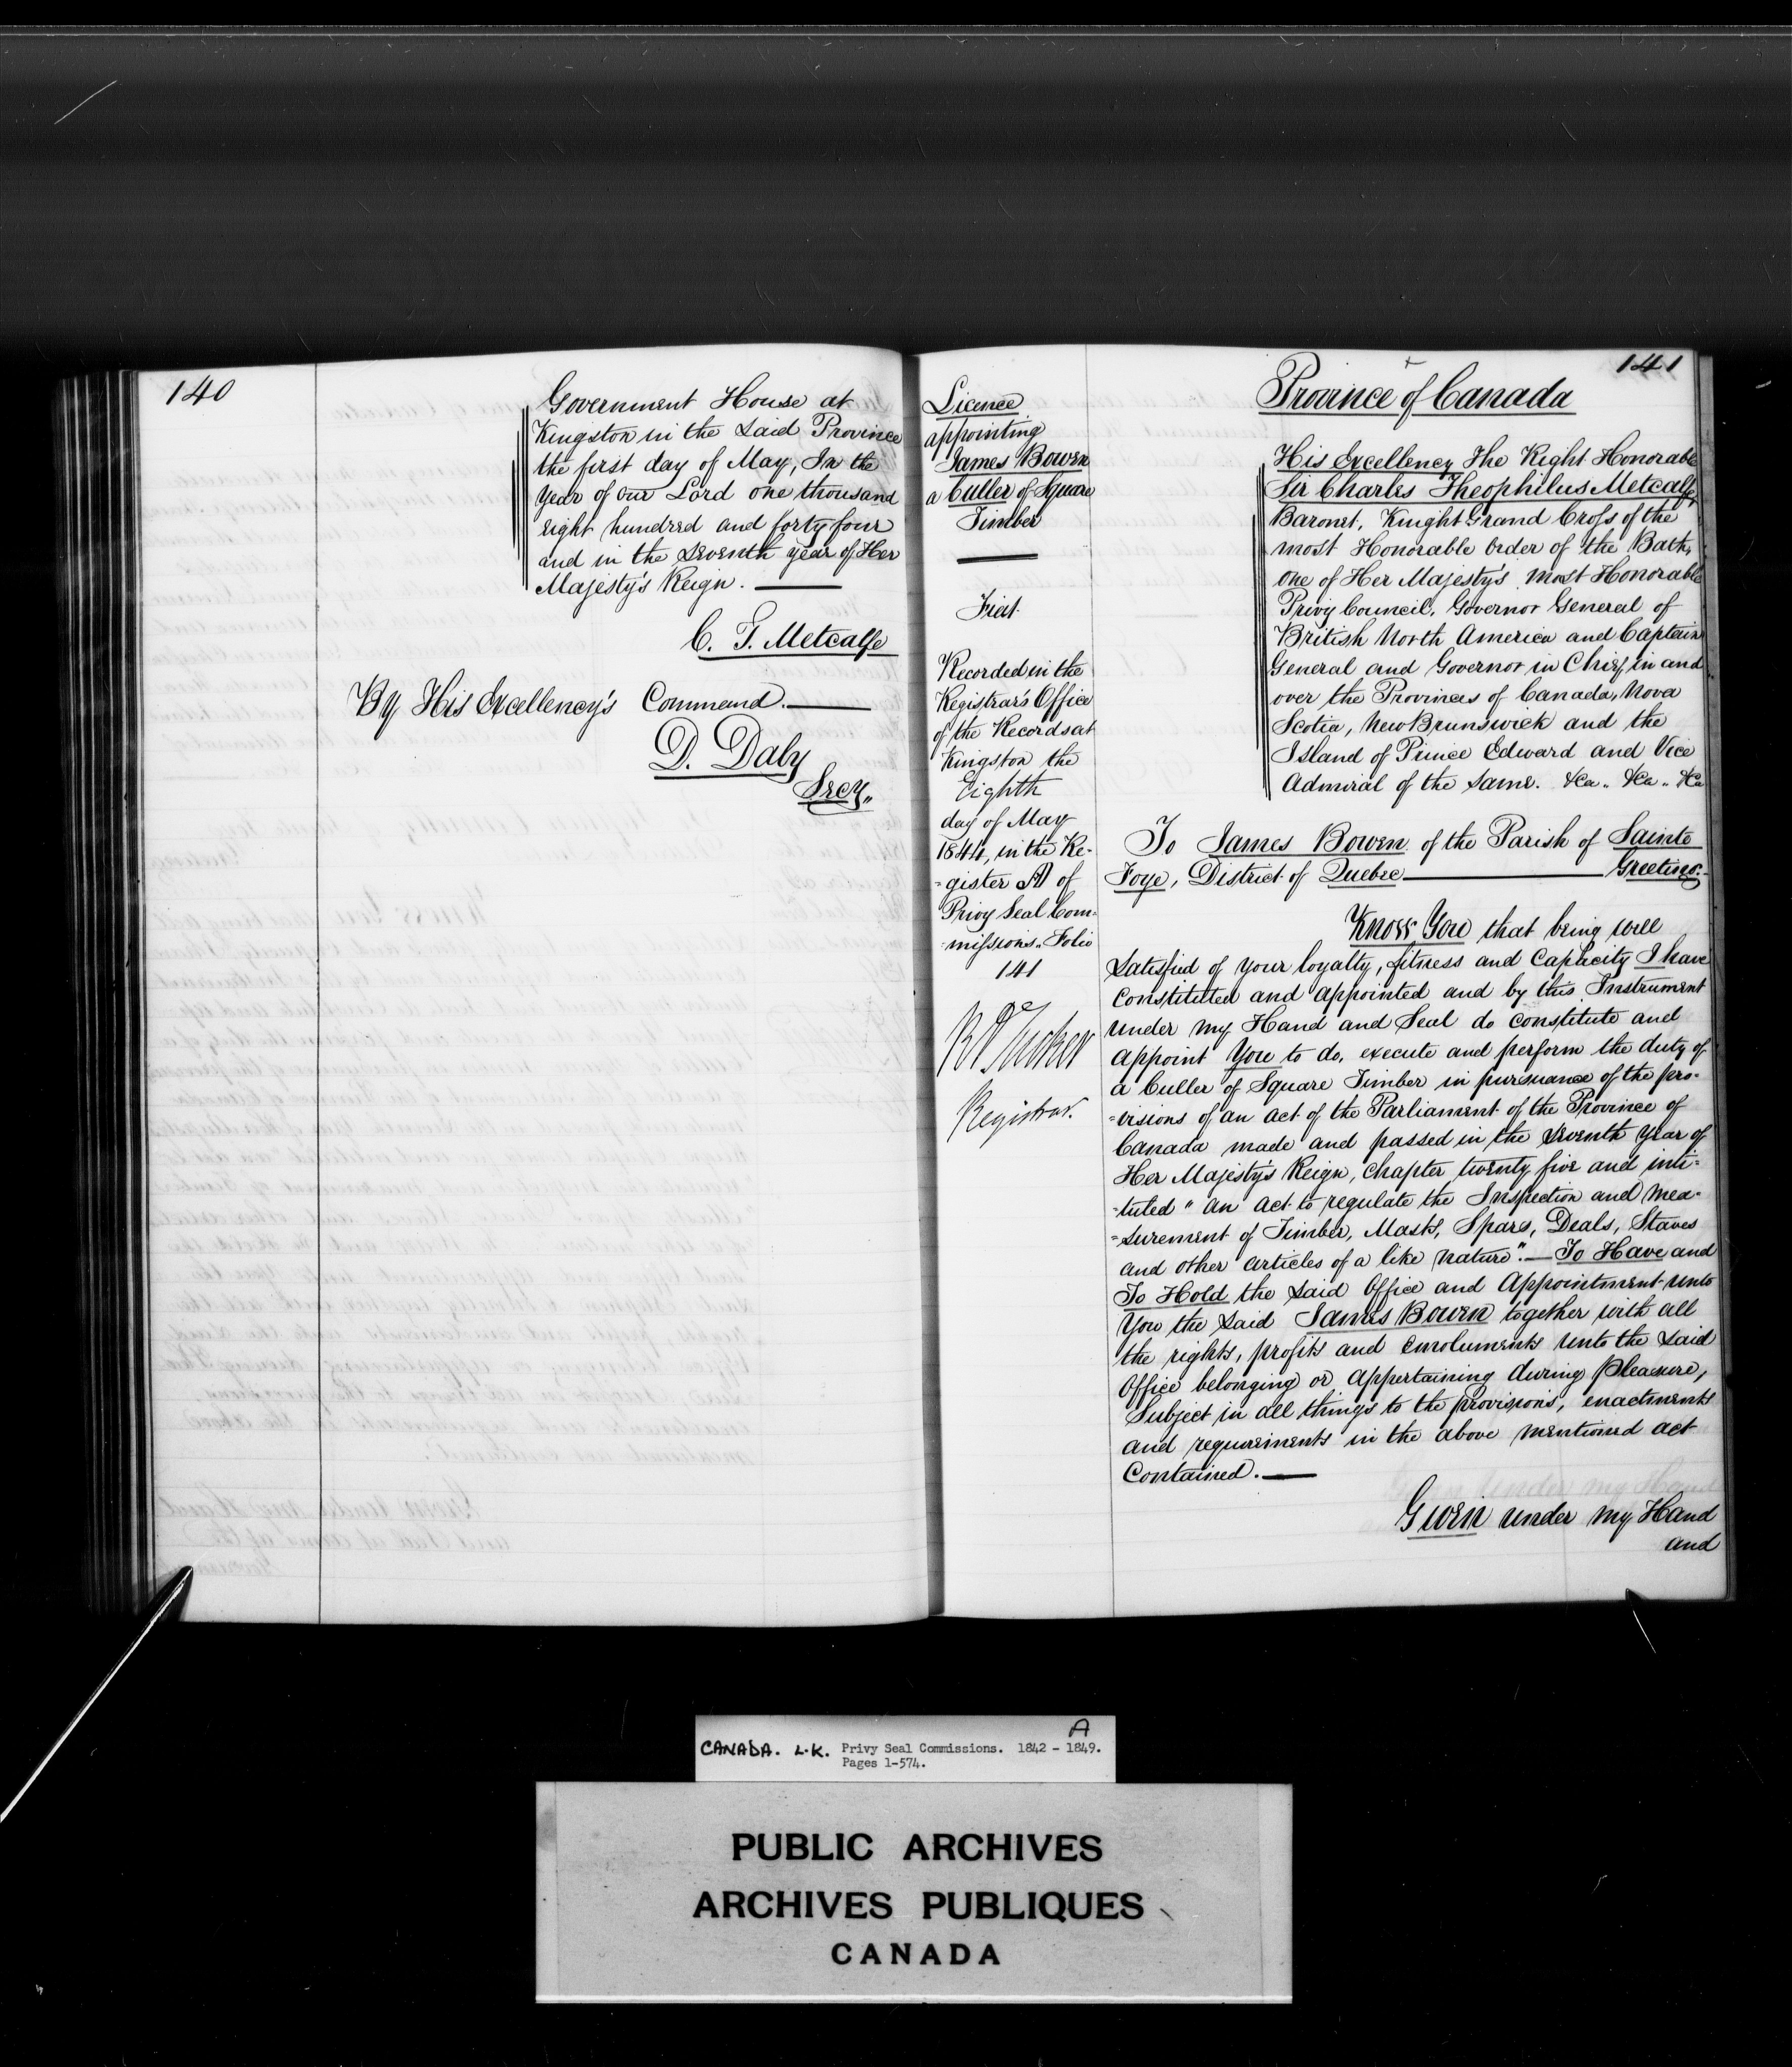 140
Government House at
Kingston in the said Province
the first day of May, In the
year of our Lord one thousand
eight hundred and forty four
and in the seventh year of Her
Majesty's Reign.
C. T. Metcalfe
By His Excellency's Command.
D. Daly
Secy.,
Licence
appointing
James Bowen
a Culler of Square
Timber
Fiat.
Recorded in the
Registrar's Office
of the Records at
Kingston the
Eighth
day of May
1844, in the Re-
=gister A of
Privy Seal Com=
=missions. Folio
141
R A Tucker
Registrar.
141
Province of Canada
His Excellency The Right Honorable
Sir Charles Theophilus Metcalfe,
Baronet, Knight Grand Cross of the
most Honorable Order of the Bath,
one of Her Majesty's most Honorable
Privy Council, Governor General of
British North America and Captain
General and Governor in Chief in and
over the Provinces of Canada, Nova
Scotia, New Brunswick and the
Island of Prince Edward and Vice
Admiral of the same. &ca.. &ca.. &ca
To James Bowen of the Parish of Sainte
Foye, District of Quebec Greeting.
Know You that being well
satisfied of your loyalty, fitness and capacity I have
constituted and appointed and by this Instrument
under my Hand and Seal do constitute and
appoint You to do, execute and perform the duty of
a Culler of Square Timber in pursuance of the pro-
=visions of an act of the Parliament of the Province of
Canada made and passed in the seventh year of
Her Majesty's Reign, chapter twenty five and inti=
-tuted " an act to regulate the Inspection and Mea-
=surement of Timber, Masts, Spars, Deals, Staves
and other articles of a like nature". — To Have and
To Hold the said Office and Appointment unto
You the said James Bowen together with all
the rights, profits and emoluments unto the said
Office belonging or appertaining during pleasure,
Subject in all things to the provisions, enactments
and requirements in the above mentioned act
Contained.
Given under my Hand
and
CANADA. L.K. Privy Seal Commissions. 1842 - 1849. A
Pages 1-574.
PUBLIC ARCHIVES
ARCHIVES PUBLIQUES
CANADA